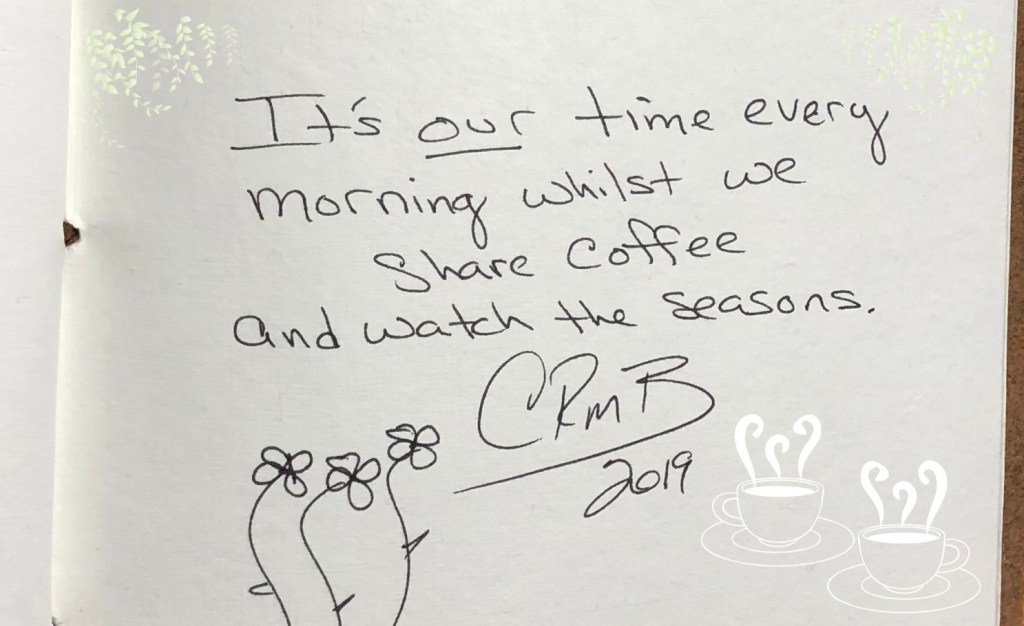 It's our time every
morning whilst we
Share Coffee
and watch the seasons.
CRMB
2019